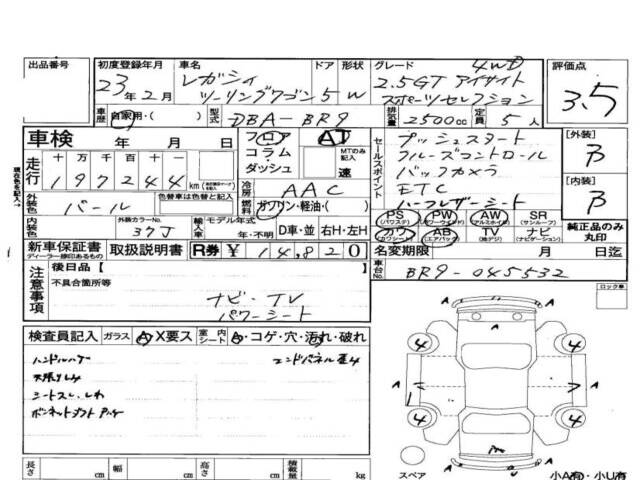 出品番号
初度登録年月
車名
ドア 形状
グレード
評価点
23年2月
レガシィ
ツーリングワゴン
5 W
4WD
2.5GT アイサイト
スポーツセレクション
3.5
車歴
自家用・( )
型式
DBA-BR9
排気量
2500cc
定員
5人
車検
年 月 日
フロア
コラム
ダッシュ
AT
MTのみ記入
速
セールスポイント
プッシュスタート
クルーズコントロール
バックカメラ
ETC
ハーフレザーシート
[外装]
B
[内装]
B
現在色を記入→
走行
十万千百十
197244km
冷房
AAC
外装色
パール
色替車は色替と記入
燃料
ガソリン・軽油・( )
内装色
外装カラーNo.
37J
輸入車
モデル年式
年・不明
D車・並
右H・左H
PS
(パワステ)
PW
(パワーウインドウ)
AW
(アルミホイル)
SR
(サンルーフ)
カワ
(カワシート)
AB
(エアバック)
TV
(地デジ)
ナビ
(ナビゲーション)
純正品のみ
丸印
新車保証書
ディーラー捺印あるもの
取扱説明書
R券
¥ 14,820
名変期限
月 日迄
注意事項
後日品【 】
不具合箇所等
ナビ・TV
パワーシート
車台No.
BR9-045532
ロック車
検査員記入
ガラス
A X要ス
室内
シート
A・コゲ・穴・汚れ・破れ
ハンドルハゲ
エンドパネル歪4
天張りしみ
シートスレ、しわ
A
A
A
A
A
A
4
4
4
4
スペア
小A有・小U有
長さ
cm
幅
cm
高さ
cm
積載量
kg